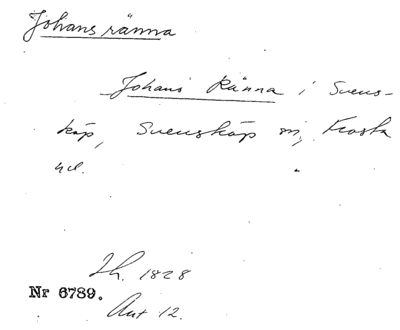 Johans ränna
Johans Ränna i Svens-
köp, Svensköp sn, Frosta
hd.
Th. 1828
Nr 6789.
Avt 12.